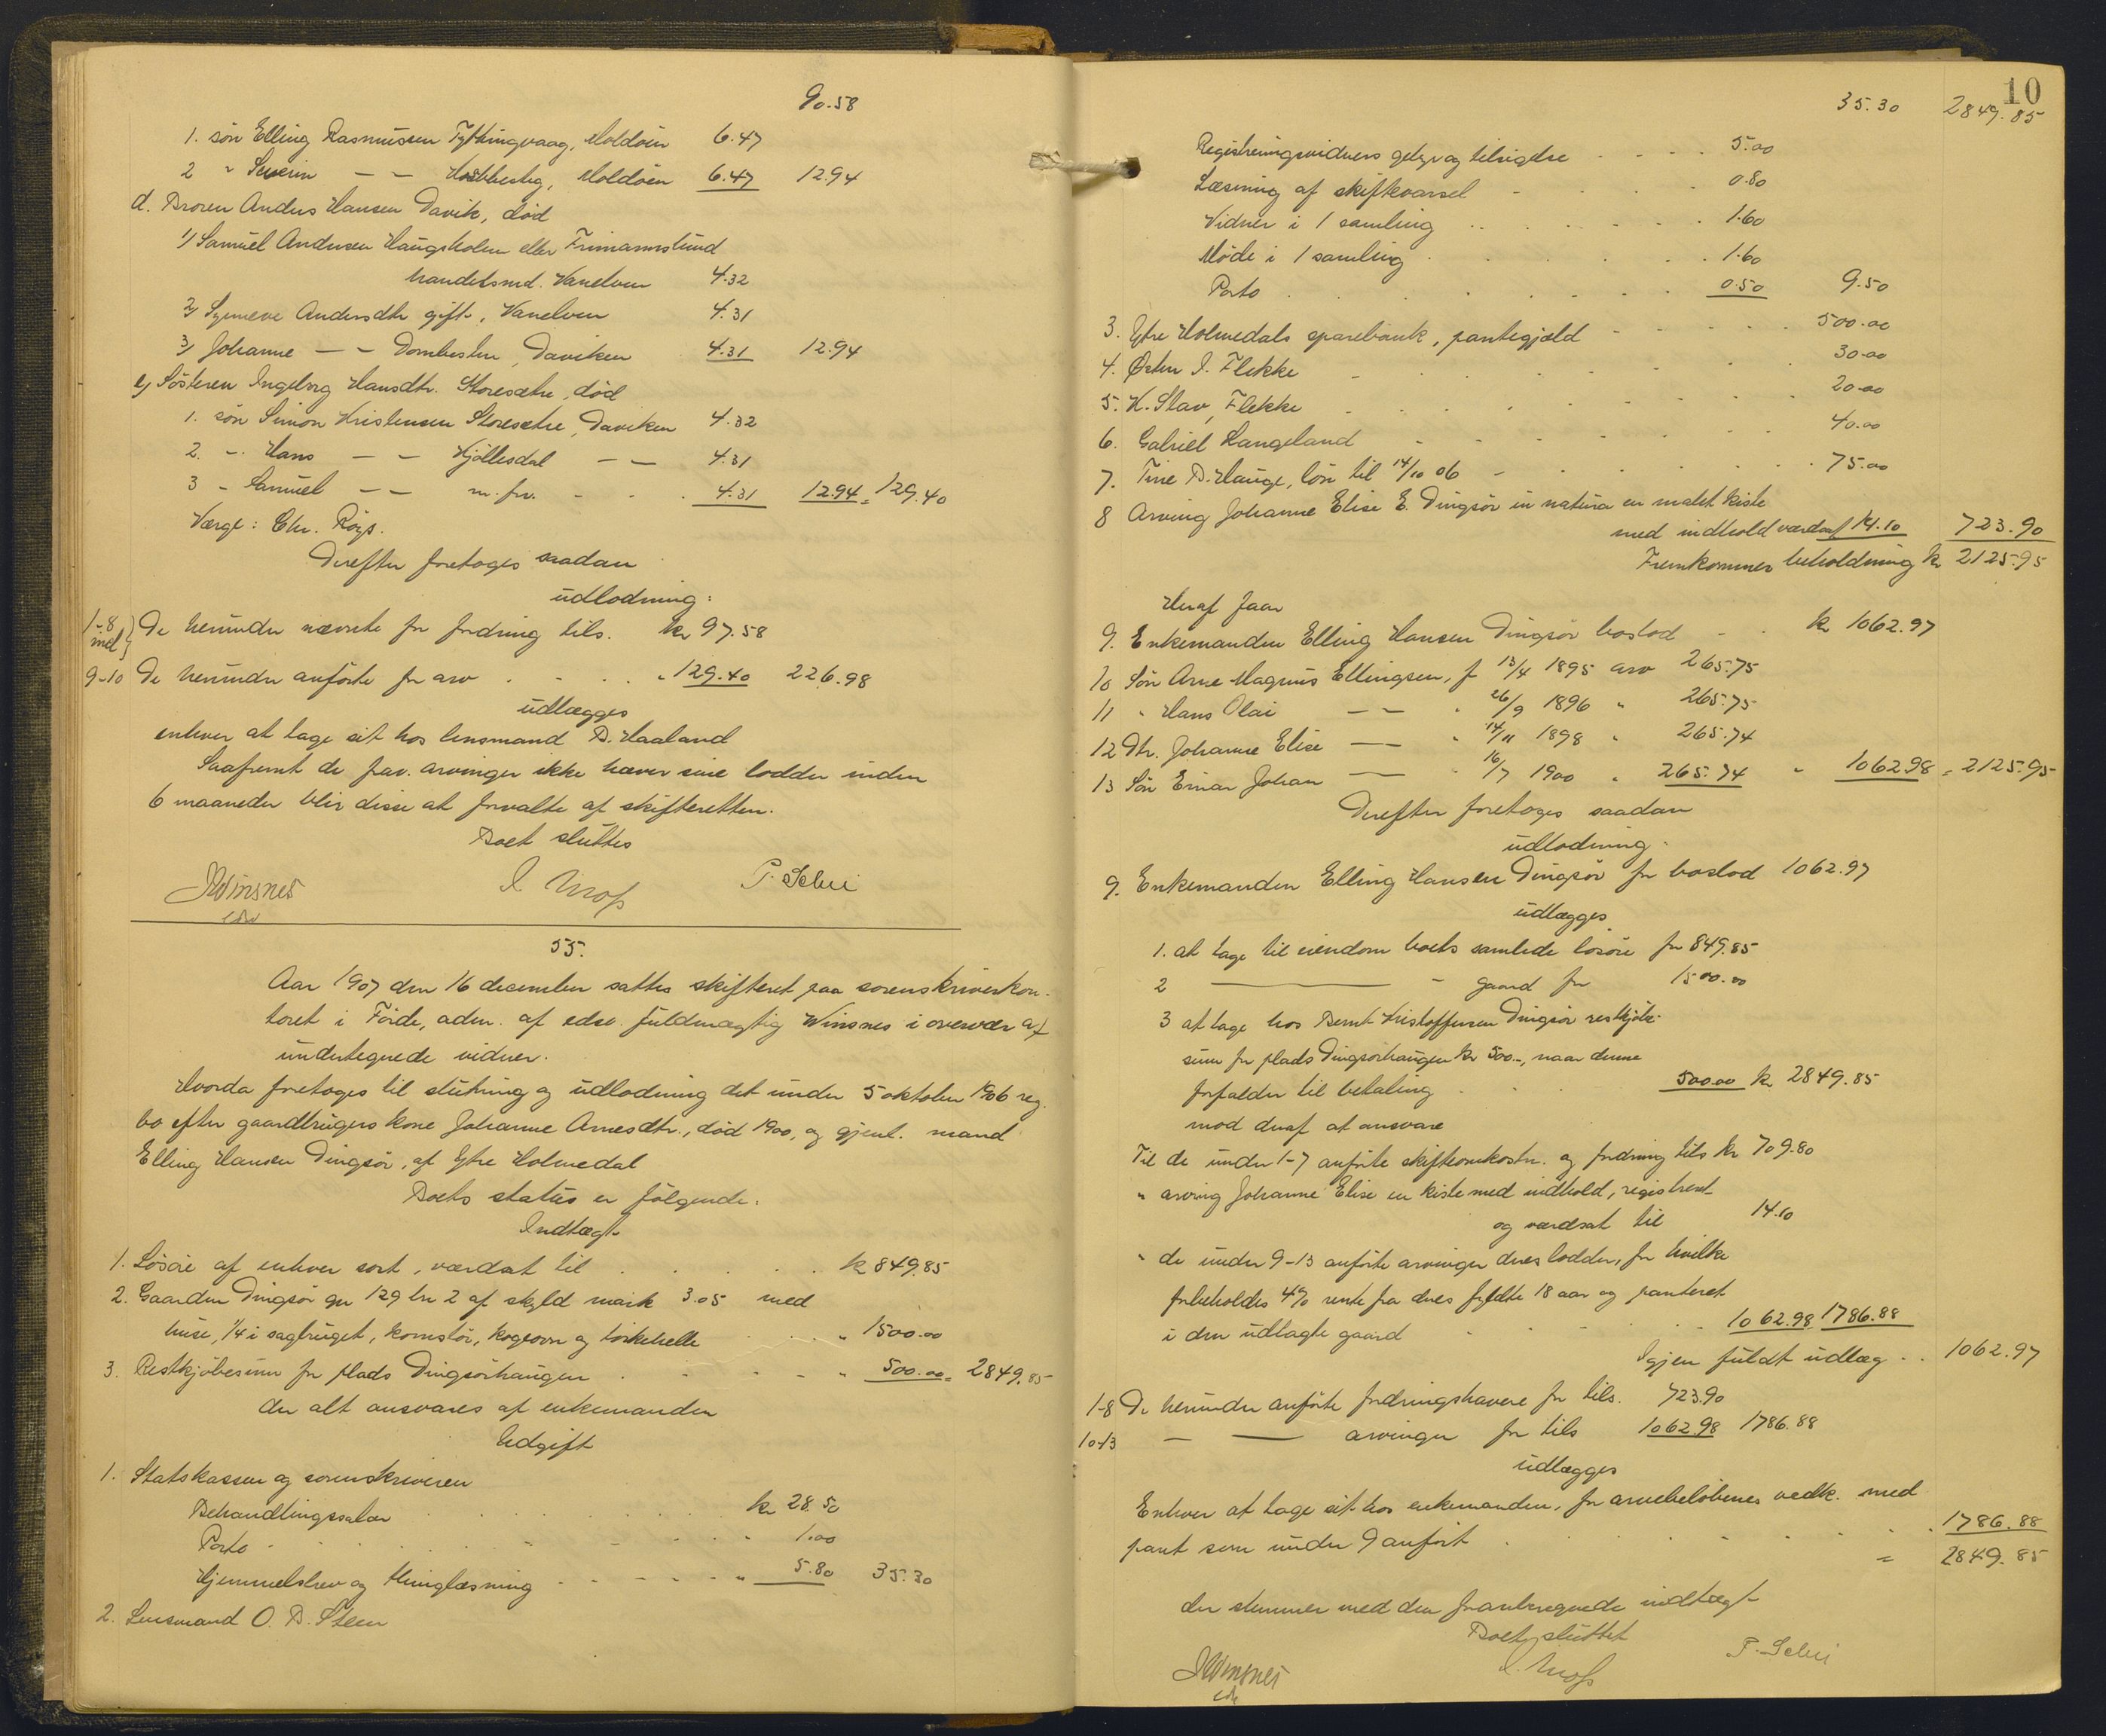 90.58
1. søn Elling Rasmussen Tytingvaag, Moldøen 6.47
2 " Severin — — Moldøen 6.47 12.94
d. Broren Anders Hansen Davik, død
1) Samuel Andersen Haugsholm eller Frimannslund
handelsmd. Vanelven 4.32
2) Synneve Andersdtr gift, Vanelven 4.31
3) Johanne — — Dombesten, Daviken 4.31 12.94
e) Søsteren Ingeborg Hansdtr. Storesætre, død
1. søn Simon Kristensen Storesætre, Daviken 4.32
2. " Hans — — Hjøllesdal — — 4.31
3 " Samuel — — m. frv. - . . 4.31 12.94 = 129.40
Værge: Chr. Røys.
Derefter foretoges saadan
udlodning:
1-8 incl } De herunder nævnte for fordring tils. kr 97.58
9-10 De herunder anførte for arv . . . . " 129.40 226.98
udlægges
enhver at tage sit hos lensmand B. Haaland
Saafremt de frav. arvinger ikke hæver sine lodder inden
6 maaneder blir disse at forvalte af skifteretten.
Boet sluttes
JWinsnes I. Moss P. Schei
edsv
55.
Aar 1907 den 16 december sattes skifteret paa sorenskriverkon-
toret i Førde, adm. af edsv. fuldmægtig Winsnes i overvær af
undertegnede vidner.
Hvorda foretoges til slutning og udlodning det under 5 oktober 1906 reg.
bo efter gaardbrugers kone Johanne Arnesdtr., død 1900, og gjenl. mand
Elling Hansen Dingsør, af Ytre Holmedal
Boets status er følgende:
Indtægt
1. Løsøre af enhver sort, værdsat til . . . . . kr 849.85
2. Gaarden Dingsør gn 129 bn 2 af skyld mark 3.05 med
huse, 1/4 i sagbruget, kornstør, kogeovn og tørkehelle . . . " 1500.00
3. Restkjøbesum for plads Dingsørhaugen . . . . " 500.00 = 2849.85
der alt ansvares af enkemanden
Udgift
1. Statskassen og sorenskriveren
Behandlingssalær . . . . . kr 28.50
Porto . . . . . . . " 1.00
Hjemmelsbrev og thinglæsning . . . . . " 5.80 35.30
2. Lensmand O. B. Steen
10
35.30 2849.85
Registreringsvidners gebyr og tilsigelse . . . . 5.00
Læsning af skiftevarsel . . . . 0.80
Vidner i 1 samling . . . . . . 1.60
Møde i 1 samling . . . . . . 1.60
Porto . . . . . . . 0.50 9.50
3. Ytre Holmedals sparebank, pantegjæld . . . . . 500.00
4. Østen I. Flekke . . . . . . . 30.00
5. K. Stav, Flekke . . . . . . . 20.00
6. Gabriel Langeland . . . . . . . 40.00
7. Tine B. Hauge, løn til 14/10 06 . . . . . . 75.00
8 Arving Johanne Elise E. Dingsør in natura en malet kiste
med indhold værdsat 14.10 723.90
Fremkommer beholdning kr 2125.95
Heraf faar
9. Enkemanden Elling Hansen Dingsør boslod . . kr 1062.97
10 Søn Arne Magnus Ellingsen, f 13/4 1895 arv 265.75
11 " Hans Olai — — " 26/9 1896 " 265.75
12 Dtr. Johanne Elise — — " 14/11 1898 " 265.74
13 Søn Einar Johan — — " 16/7 1900 " 265.74 " 1062.98 = 2125.95
Derefter foretoges saadan
udlodning.
9. Enkemanden Elling Hansen Dingsør for boslod 1062.97
udlægges
1. at tage til eiendom boets samlede løsøre for 849.85
2 ———— " gaard for 1500.00
3 at tage hos Bernt Kristoffersen Dingsør restkjøbe-
sum for plads Dingsørhaugen kr 500.-, naar denne
forfalder til betaling . . . . 500.00 kr 2849.85
mod deraf at ansvare
Til de under 1-7 anførte skifteomkostn. og fordring tils kr 709.80
" arving Johanne Elise en kiste med indhold, registreret
og værdsat til 14.10
" de under 9-13 anførte arvinger deres lodder, for hvilke
forbeholdes 4% rente fra deres fyldte 18 aar og panteret
i den udlagte gaard . . . . 1062.98 1786.88
Igjen fuldt udlæg . . 1062.97
1-8 De herunder anførte fordringshavere for tils. 723.90
10-13 — — arvinger for tils 1062.98 1786.88
udlægges
Enhver at tage sit hos enkemanden, for arvebeløbenes vedk. med
pant som under 9 anført . . . . . . . 1786.88
= 2849.85
der stemmer med den foranberegnede indtægt
Boet sluttet
JWinsnes I. Moss P. Schei
edsv